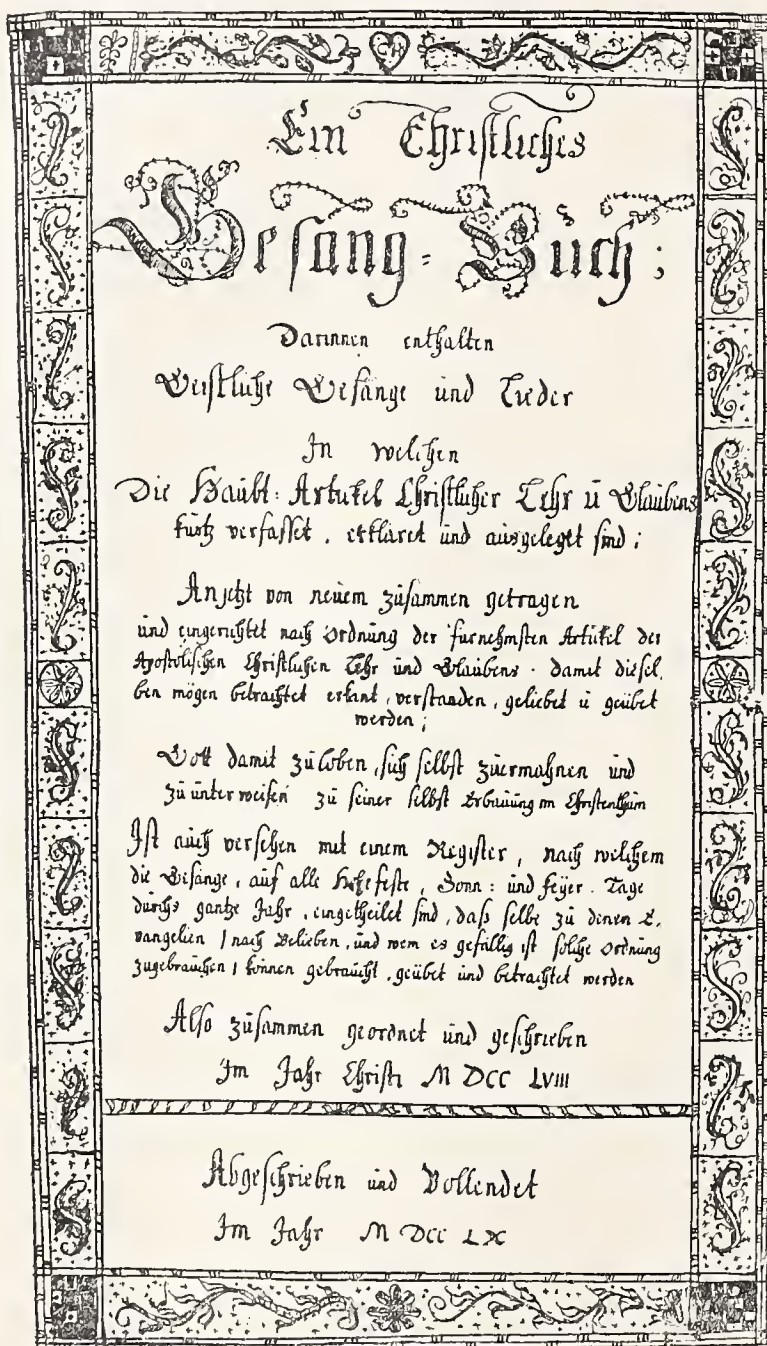 C H
Ein Christliches
Gesang=Buch;
Darinnen enthalten
Geistliche Gesänge und Lieder
In welchen
Die Haubt=Artickel Christlicher Lehr ū Glaubens
kurtz verfasset, erkläret und ausgeleget sind;
Anjetzt von neuem zusammen getragen
und eingerichtet nach Ordnung der furnehmsten Artickel der
Apostolischen Christlichen Lehr und Glaubens. damit diesel,
ben mögen betrachtet erkant, verstanden, geliebet ū geübet
werden;
Gott damit zu loben, sich selbst zuermahnen und
zu unter weisen zu seiner selbst Erbauung im Christenthum
Ist auch versehen mit einem Register, nach welchem
die Gesänge, auf alle Hohefeste, Sonn= und feyer=Tage
durchs gantze Jahr, eingetheilet sind, daß selbe zu denen E,
vangelien / nach Belieben, und wem es gefällig ist solche Ordnung
zugebrauchen / können gebraucht, geübet und betrachtet werden
Also zusammen geordnet und geschrieben
Im Jahr Christi M DCC LVIII
Abgeschrieben und Vollendet
Im Jahr M DCC LX